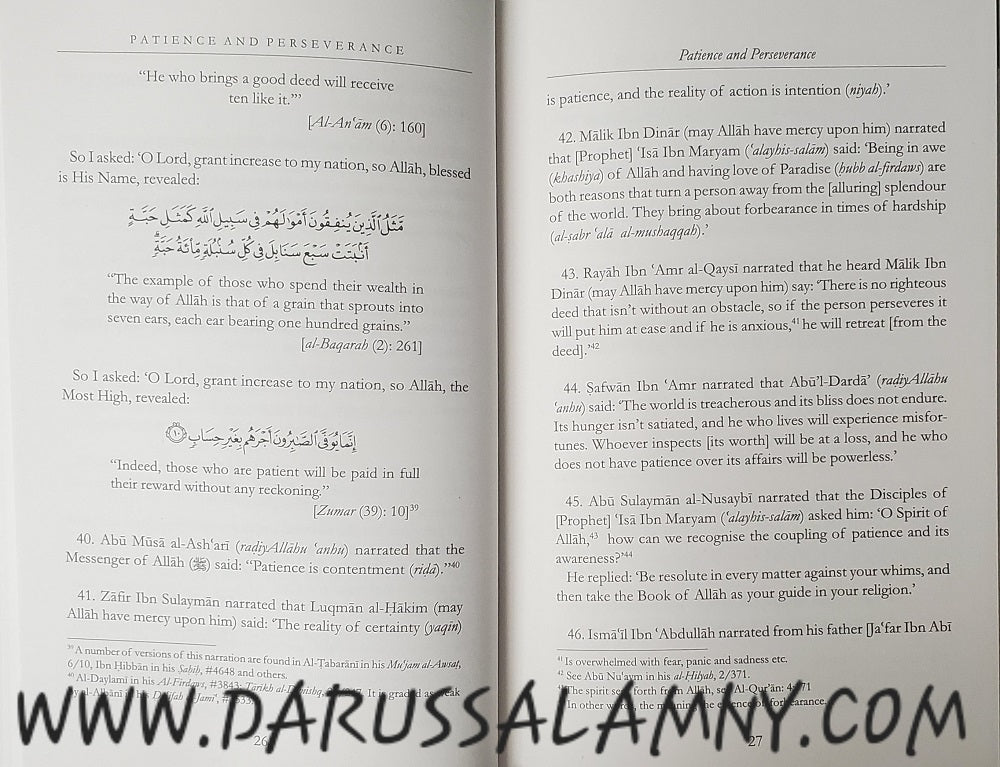 PATIENCE AND PERSEVERANCE
“He who brings a good deed will receive
ten like it.”’
[Al-An‘ām (6): 160]
So I asked: ‘O Lord, grant increase to my nation, so Allāh, blessed
is His Name, revealed:
مَّثَلُ ٱلَّذِينَ يُنفِقُونَ أَمْوَٰلَهُمْ فِى سَبِيلِ ٱللَّهِ كَمَثَلِ حَبَّةٍ
أَنۢبَتَتْ سَبْعَ سَنَابِلَ فِى كُلِّ سُنۢبُلَةٍ مِّا۟ئَةُ حَبَّةٍ ۗ
“The example of those who spend their wealth in
the way of Allāh is that of a grain that sprouts into
seven ears, each ear bearing one hundred grains.”
[al-Baqarah (2): 261]
So I asked: ‘O Lord, grant increase to my nation, so Allāh, the
Most High, revealed:
إِنَّمَا يُوَفَّى ٱلصَّٰبِرُونَ أَجْرَهُم بِغَيْرِ حِسَابٍ ١٠
“Indeed, those who are patient will be paid in full
their reward without any reckoning.”
[Zumar (39): 10]39
40. Abū Mūsā al-Ash‘arī (raḍiyAllāhu ‘anhu) narrated that the
Messenger of Allāh (ﷺ) said: “Patience is contentment (riḍā).”40
41. Zāfir Ibn Sulaymān narrated that Luqmān al-Ḥākim (may
Allāh have mercy upon him) said: ‘The reality of certainty (yaqīn)
39 A number of versions of this narration are found in Al-Ṭabarānī in his Mu‘jam al-Awsaṭ,
6/10, Ibn Hibbān in his Ṣaḥīḥ, #4648 and others.
40 Al-Daylamī in his Al-Firdaws, #3843; Tārīkh al-Dimishq, It is graded as weak
by al-Albānī in his Ḍa‘īf al-Jāmi‘,
26
Patience and Perseverance
is patience, and the reality of action is intention (niyah).’
42. Mālik Ibn Dinār (may Allāh have mercy upon him) narrated
that [Prophet] ‘Isā Ibn Maryam (‘alayhis-salām) said: ‘Being in awe
(khashiya) of Allāh and having love of Paradise (ḥubb al-firdaws) are
both reasons that turn a person away from the [alluring] splendour
of the world. They bring about forbearance in times of hardship
(al-ṣabr ‘alā al-mushaqqah).’
43. Rayāh Ibn ‘Amr al-Qaysī narrated that he heard Mālik Ibn
Dinār (may Allāh have mercy upon him) say: ‘There is no righteous
deed that isn’t without an obstacle, so if the person perseveres it
will put him at ease and if he is anxious,41 he will retreat [from the
deed].’42
44. Ṣafwān Ibn ‘Amr narrated that Abū’l-Dardā’ (raḍiyAllāhu
‘anhu) said: ‘The world is treacherous and its bliss does not endure.
Its hunger isn’t satiated, and he who lives will experience misfor-
tunes. Whoever inspects [its worth] will be at a loss, and he who
does not have patience over its affairs will be powerless.’
45. Abū Sulaymān al-Nusaybī narrated that the Disciples of
[Prophet] ‘Isā Ibn Maryam (‘alayhis-salām) asked him: ‘O Spirit of
Allāh,43 how can we recognise the coupling of patience and its
awareness?’44
He replied: ‘Be resolute in every matter against your whims, and
then take the Book of Allāh as your guide in your religion.’
46. Ismā‘īl Ibn ‘Abdullāh narrated from his father [Ja‘far Ibn Abī
41 Is overwhelmed with fear, panic and sadness etc.
42 See Abū Nu‘aym in his al-Hilyah, 2/371.
43 The spirit sent forth from Allāh, see Al-Qur’ān: 4:171
44 In other words, the meaning/the essence of forbearance.
27
WWW.DARUSSALAMNY.COM